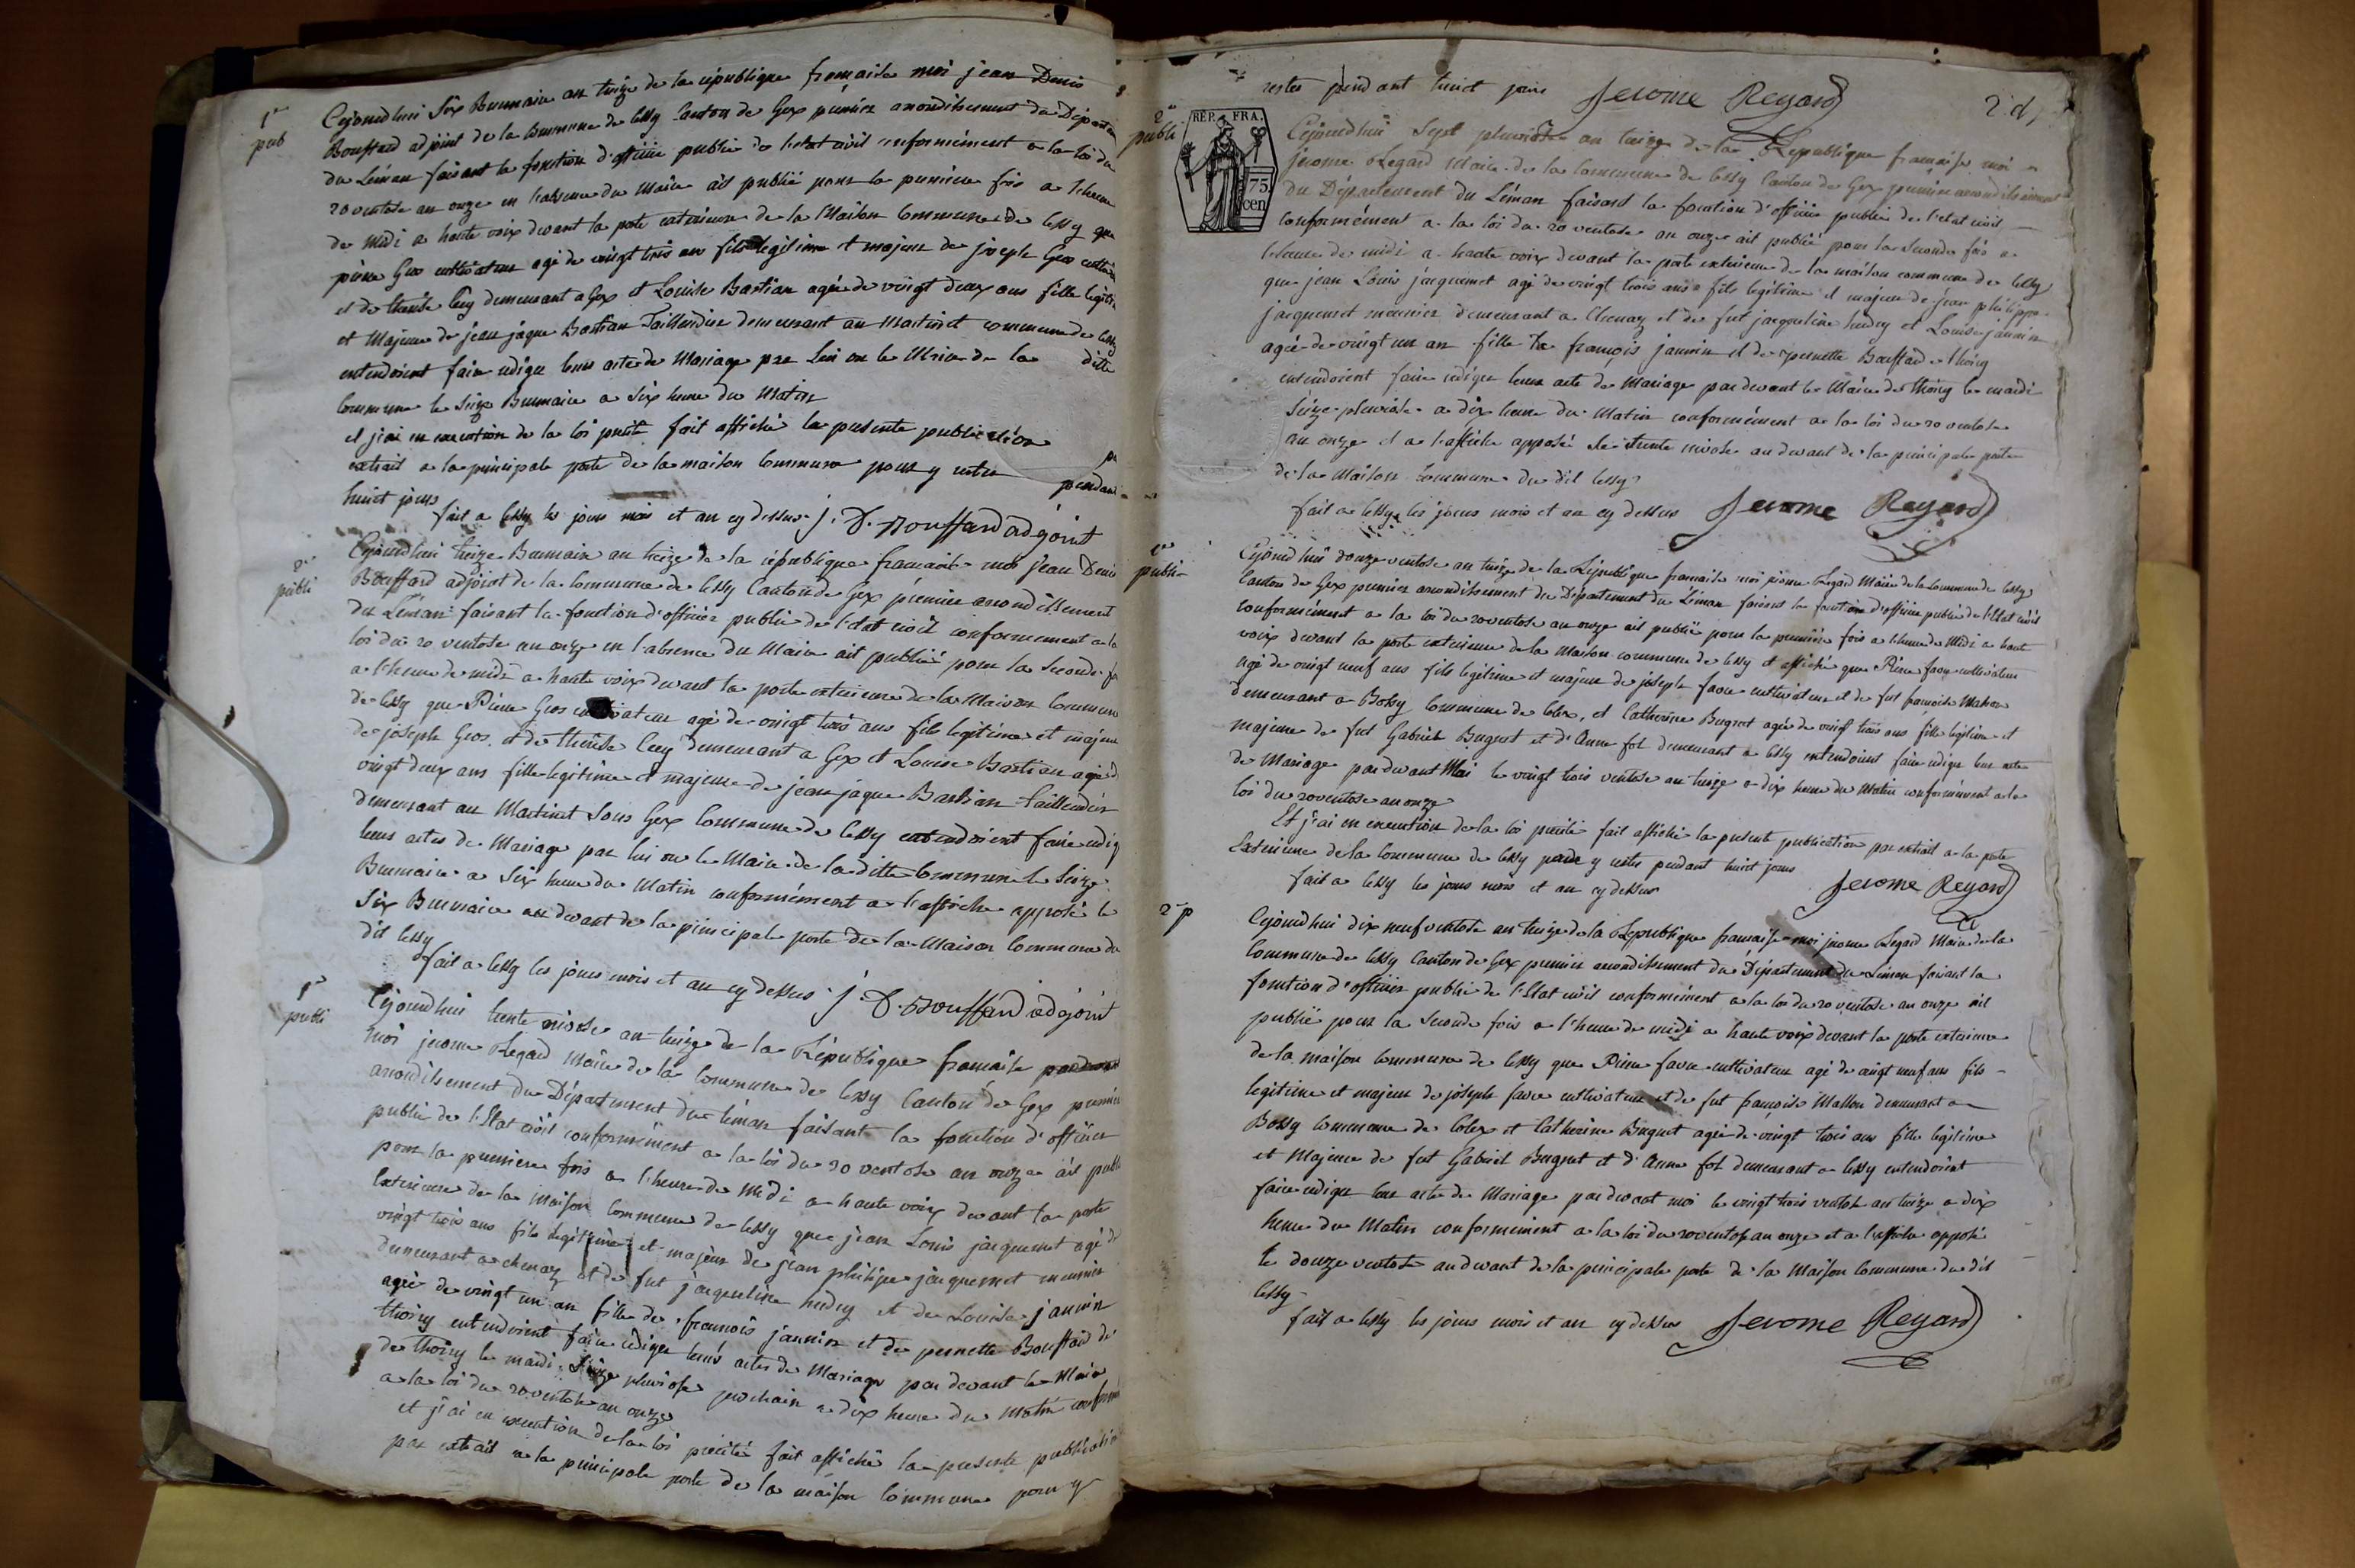 1er
pub
Cejourdhui Six Brumaire an treize de la république francaise moi jean Denis
Bouffard adjoint de la Commune de Cessy Canton de Gex premier arrondissement du Départem
du Léman faisant la fonction d'officier public de l'etat civil conformément a la loi du
20 ventose an onze en l'absence du Maire ait publié pour la premiere fois a l'heure
de Midi a haute voix devant la porte exterieure de la Maison Commune de Cessy que
pierre Gros cultivateur agé de vingt trois ans fils legitime et majeur de joseph Gros cultivat
et de therese Cuy demeurant a Gex et Louise Bastian agée de vingt deux ans fille legiti
et Majeure de jean jaque Bastian Taillendier demeurant au Martinet commune de Cessy
entendoient faire rediger leurs actes de Mariage par lui ou le Maire de la ditte
Commune le Seize Brumaire a Six heure du Matin
et j'ai en execution de la loi precité fait affiché la presente publication par
extrait a la principale porte de la maison Commune pour y rester pendant
huit jours
fait a Cessy les jours mois et an cy dessus j. D. Bouffard adjoint
2e
publi
Cejourdhui treize Brumaire an treize de la république francaise moi jean Denis
Bouffard adjoint de la Commune de Cessy Canton de Gex premier arrondissement
du Léman faisant la fonction d'officier public de l'etat civil conformement a la
loi du 20 ventose an onze en l'absence du Maire ait publié pour la seconde fo
a l'heure de midi a haute voix devant la porte exterieure de la Maison Commune
de Cessy que Pierre Gros cultivateur agé de vingt trois ans fils legitime et majeur
de joseph Gros et de therese Cuy demeurant a Gex et Louise Bastian agée d
vingt deux ans fille legitime et majeure de jean jaque Bastian taillendier
demeurant au Martinet sous Gex Commune de Cessy entendoient faire redig
leurs actes de Mariage par lui ou le Maire de la ditte Commune le Seize
Brumaire a Six heure du Matin conformément a l'affiche apposée le
Six Brumaire au devant de la principale porte de la Maison Commune du
dit Cessy
fait a Cessy les jours mois et an cy dessus j. D. Bouffard adjoint
1er
publi
Cejourdhui trente nivose an treize de la République francaise
moi jerome Regard Maire de la Commune de Cessy Canton de Gex premier
arrondissement du Département du Léman faisant la fonction d'officier
public de l'Etat civil conformément a la loi du 20 ventose an onze ait publi
pour la premiere fois a l'heure de Midi a haute voix devant la porte
Exterieure de la Maison Commune de Cessy que jean Louis jacquemet agé de
vingt trois ans fils legitime et majeur de jean philippe jacquemet meunier
demeurant a chenaz et de fut jacqueline hudry et de Louise jannin
agée de vingt un an fille de francois jannin et de pernette Bouffard de
thoiry entendoient faire rediger leurs actes de Mariage par devant le Maire
de thoiry le mardi Seize pluviose prochain a dix heure du matin conform
a la loi du 20 ventose an onze
et j'ai en execution de la loi precité fait affiché la presente publication
par extrait a la principale porte de la maison Commune pour y
rester pendant huict jours Jerome Regard
2e
publi
RÉP. FRA.
75
cen
Cejourdhui Sept pluviose an treize de la République francaise moi
jerome Regard Maire de la Commune de Cessy Canton de Gex premier arrondissement
du Département du Léman faisant la fonction d'officier public de l'etat civil
conformément a la loi du 20 ventose an onze ait publié pour la Seconde fois a
l'heure de midi a haute voix devant la porte exterieure de la maison commune de Cessy
que jean Louis jacquemet agé de vingt trois ans fils legitime et majeur de jean philippe
jacquemet meunier demeurant a Chenaz et de fut jacqueline hudry et Louise jannin
agée de vingt un an fille de francois jannin et de pernette Bouffard de thoiry
entendoient faire rediger leurs acte de Mariage par devant le Maire de thoiry le mardi
Seize pluviose a dix heure du Matin conformément a la loi du 20 ventose
an onze et a l'affiche apposée le trente nivose au devant de la principale porte
de la Maison Commune du dit Cessy
fait a Cessy les jours mois et an cy dessus Jerome Regard
1er
publi
Cejourdhui douze ventose an treize de la République francaise moi jerome Regard Maire de la Commune de Cessy
Canton de Gex premier arrondissement du Département du Léman faisant la fonction d'officier public de l'Etat civil
conformement a la loi du 20 ventose an onze ait publié pour la premiere fois a l'heure de Midi a haute
voix devant la porte exterieure de la Maison commune de Cessy et affiché que Pierre favre cultivateur
agé de vingt neuf ans fils legitime et majeur de joseph favre cultivateur et de fut francoise Mallon
demeurant a Bossy Commune de Colex, et Catherine Bugnet agée de vingt trois ans fille legitime et
majeure de fut Gabriel Bugnet et d'Anne fol demeurant a Cessy entendoient faire rediger leur acte
de Mariage par devant Moi le vingt trois ventose an treize a dix heure du Matin conformément a la
loi du 20 ventose an onze
Et j'ai en execution de la loi precité fait affiché la presente publication par extrait a la porte
Exterieure de la Commune de Cessy pour y rester pendant huict jours
fait a Cessy les jours mois et an cy dessus Jerome Regard
2e p
Cejourdhui dix neuf ventose an treize de la République francaise moi jerome Regard Maire de la
Commune de Cessy Canton de Gex premier arrondissement du Département du Léman faisant la
fonction d'officier public de l'Etat civil conformément a la loi du 20 ventose an onze ait
publié pour la Seconde fois a l'heure de midi a haute voix devant la porte exterieure
de la maison Commune de Cessy que Pierre favre cultivateur agé de vingt neuf ans fils
legitime et majeur de joseph favre cultivateur et de fut francoise Mallon demeurant a
Bossy Commune de Colex et Catherine Bugnet agée de vingt trois ans fille legitime
et Majeure de fut Gabriel Bugnet et d'Anne fol demeurant a Cessy entendoient
faire rediger leur acte de Mariage par devant moi le vingt trois ventose an treize a dix
heure du Matin conformement a la loi du 20 ventose an onze et a l'affiche apposée
le douze ventose au devant de la principale porte de la Maison Commune du dit
Cessy
fait a Cessy les jours mois et an cy dessus Jerome Regard